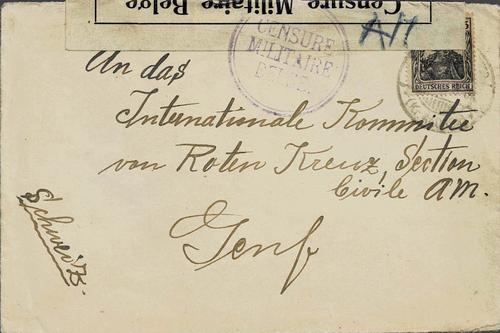 Censure Militaire Belge
CENSURE
MILITAIRE
DEUTSCHES REICH
An das
Internationale Kommitee
von Roten Kreuz, Section
Civile AM.
Genf
Schweitz.